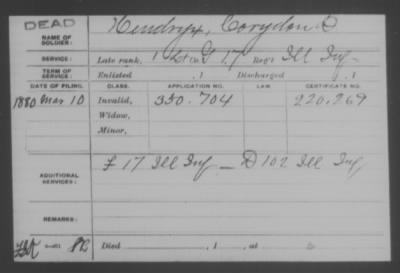 DEAD
NAME OF SOLDIER: Hendryx, Corydon C
SERVICE: Late rank, 1 Lt Co G 17 Reg't Ill Inf
TERM OF SERVICE: Enlisted , 1 Discharged , 1
DATE OF FILING. CLASS. APPLICATION NO. LAW. CERTIFICATE NO.
1880 Mar 10 Invalid, 350.704 220.269
Widow,
Minor,
ADDITIONAL SERVICES: F 17 Ill Inf – D 102 Ill Inf
REMARKS:
Died , 1 , at